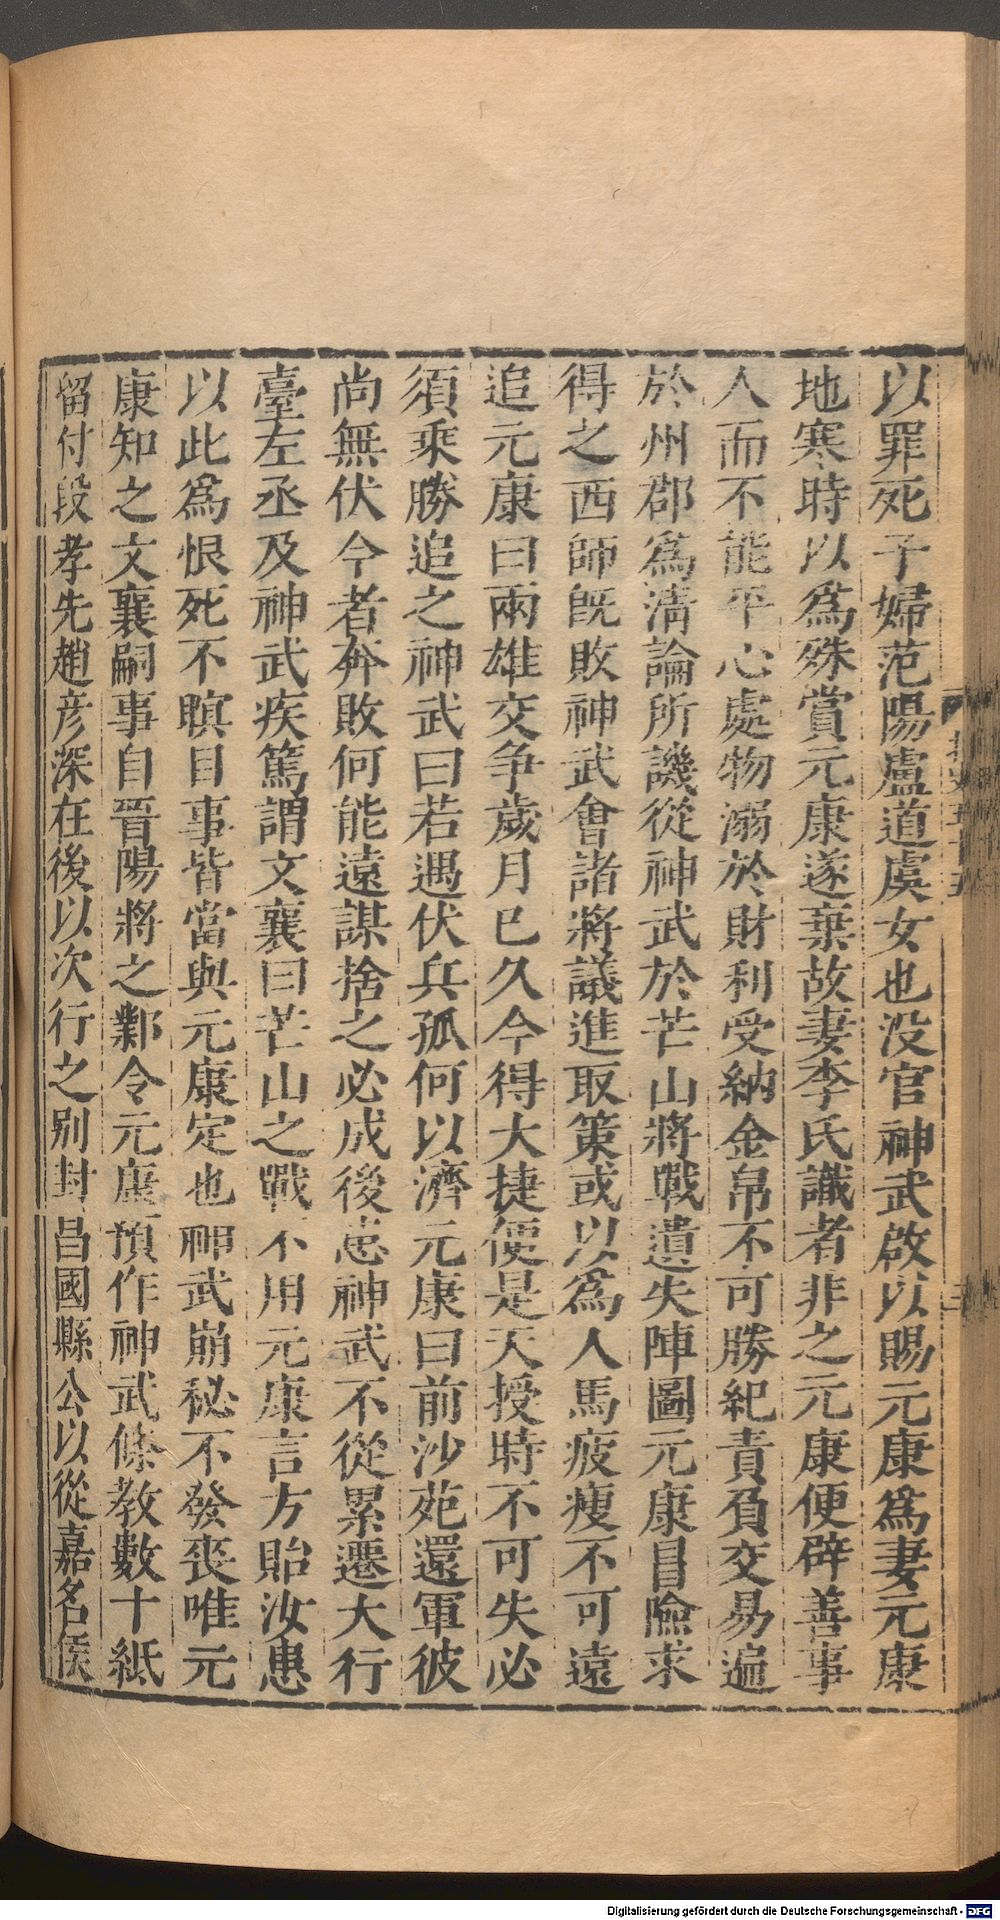 以罪死子婦范陽盧道虞女也没官神武啟以賜元康爲妻元康
地寒時以爲殊賞元康遂棄故妻李氏識者非之元康便辟善事
人而不能平心處物溺於財利受納金帛不可勝紀責負交易遍
於州郡爲淸論所譏從神武於芒山將戰遺失陣圖元康冒險求
得之西師旣敗神武會諸將議進取策或以爲人馬疲瘦不可遠
追元康曰兩雄交爭歲月已久今得大捷便是天授時不可失必
須乘勝追之神武曰若遇伏兵孤何以濟元康曰前沙苑還軍彼
尚無伏今者奔敗何能遠謀捨之必成後患神武不從累遷大行
臺左丞及神武疾篤謂文襄曰芒山之戰不用元康言方貽汝患
以此爲恨死不瞑目事皆當與元康定也神武崩秘不發喪唯元
康知之文襄嗣事自晋陽將之鄴令元康預作神武條教數十紙
留付段孝先趙彦深在後以次行之别封昌國縣公以從嘉名侯
Digitalisierung gefördert durch die Deutsche Forschungsgemeinschaft - DFG